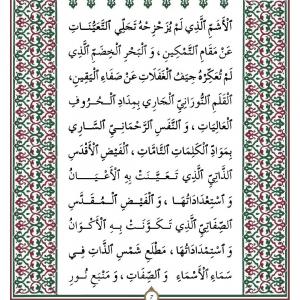 الْأَشَمِّ الَّذِي لَمْ يُزَحْزِحْهُ تَجَلِّي التَّعَيُّنَاتِ
عَنْ مَقَامِ التَّمْكِينِ ، وَ الْبَحْرِ الْخِضَمِّ الَّذِي
لَمْ تُعَكِّرْهُ جِيَفُ الْغَفَلَاتِ عَنْ صَفَاءِ الْيَقِينِ،
الْقَلَمِ النُّورَانِيِّ الْجَارِي بِمِدَادِ الْحُرُوفِ
الْعَالِيَاتِ ، وَ النَّفَسِ الرَّحْمَانِيِّ السَّارِي
بِمَوَادِّ الْكَلِمَاتِ التَّامَّاتِ ، الْفَيْضِ الْأَقْدَسِ
الذَّاتِيِّ الَّذِي تَعَيَّنَتْ بِهِ الْأَعْيَانُ
وَ اسْتِعْدَادَاتُهَا ، وَ الْفَيْضِ الْمُقَدَّسِ
الصِّفَاتِيِّ الَّذِي تَكَوَّنَتْ بِهِ الْأَكْوَانُ
وَ اسْتِمْدَادَاتُهَا ، مَطْلَعِ شَمْسِ الذَّاتِ فِي
سَمَاءِ الْأَسْمَاءِ وَ الصِّفَاتِ ، وَ مَنْبَعِ نُورِ